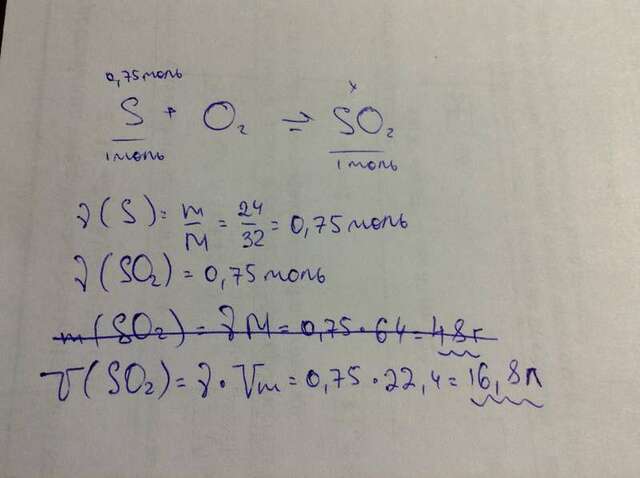 0,75 моль x
S + O₂ ⇒ SO₂
1 моль 1 моль
ν(S) = m/M = 24/32 = 0,75 моль
ν(SO₂) = 0,75 моль
m(SO₂) = νM = 0,75 · 64 = 48г
V(SO₂) = ν · Vm = 0,75 · 22,4 = 16,8л